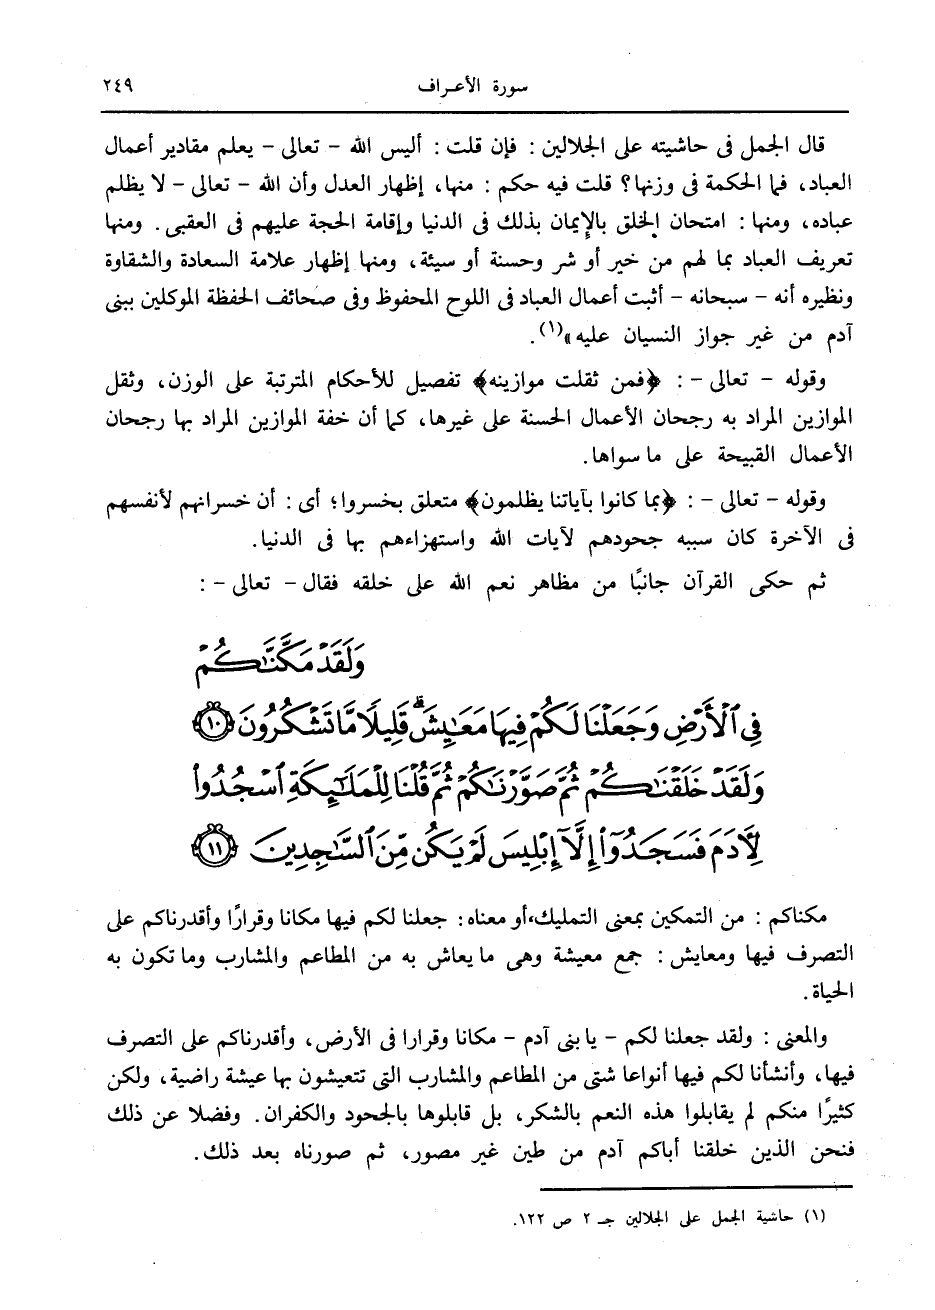 سورة الأعراف ٢٤٩
قال الجمل فى حاشيته على الجلالين : فإن قلت : أليس الله - تعالى - يعلم مقادير أعمال
العباد، فما الحكمة فى وزنها؟ قلت فيه حكم : منها، إظهار العدل وأن الله - تعالى - لا يظلم
عباده، ومنها : امتحان الخلق بالإيمان بذلك فى الدنيا وإقامة الحجة عليهم فى العقبى. ومنها
تعريف العباد بما لهم من خير أو شر وحسنة أو سيئة، ومنها إظهار علامة السعادة والشقاوة
ونظيره أنه - سبحانه - أثبت أعمال العباد فى اللوح المحفوظ وفى صحائف الحفظة الموكلين ببنى
آدم من غير جواز النسيان عليه»(١).
وقوله - تعالى - : ﴿فمن ثقلت موازينه﴾ تفصيل للأحكام المترتبة على الوزن، وثقل
الموازين المراد به رجحان الأعمال الحسنة على غيرها، كما أن خفة الموازين المراد بها رجحان
الأعمال القبيحة على ما سواها.
وقوله - تعالى - : ﴿بما كانوا بآياتنا يظلمون﴾ متعلق بخسروا؛ أى : أن خسرانهم لأنفسهم
فى الآخرة كان سببه جحودهم لآيات الله واستهزاءهم بها فى الدنيا.
ثم حكى القرآن جانبًا من مظاهر نعم الله على خلقه فقال - تعالى - :
وَلَقَدْ مَكَّنَّٰكُمْ
فِى ٱلْأَرْضِ وَجَعَلْنَا لَكُمْ فِيهَا مَعَٰيِشَ ۗ قَلِيلًا مَّا تَشْكُرُونَ ١٠
وَلَقَدْ خَلَقْنَٰكُمْ ثُمَّ صَوَّرْنَٰكُمْ ثُمَّ قُلْنَا لِلْمَلَٰٓئِكَةِ ٱسْجُدُوا۟
لِءَادَمَ فَسَجَدُوٓا۟ إِلَّآ إِبْلِيسَ لَمْ يَكُن مِّنَ ٱلسَّٰجِدِينَ ١١
مكناكم : من التمكين بمعنى التمليك، أو معناه : جعلنا لكم فيها مكانا وقرارًا وأقدرناكم على
التصرف فيها ومعايش : جمع معيشة وهى ما يعاش به من المطاعم والمشارب وما تكون به
الحياة.
والمعنى : ولقد جعلنا لكم - يا بنى آدم - مكانا وقرارا فى الأرض، وأقدرناكم على التصرف
فيها، وأنشأنا لكم فيها أنواعا شتى من المطاعم والمشارب التى تتعيشون بها عيشة راضية، ولكن
كثيرًا منكم لم يقابلوا هذه النعم بالشكر، بل قابلوها بالجحود والكفران. وفضلا عن ذلك
فنحن الذين خلقنا أباكم آدم من طين غير مصور، ثم صورناه بعد ذلك.
(١) حاشية الجمل على الجلالين جـ ٢ ص ١٢٢.